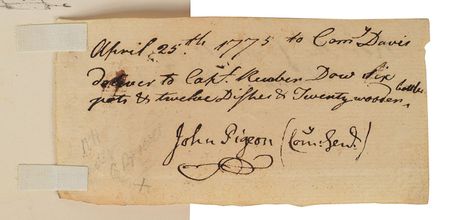 April 25.th 1775 to Com.y Davis
deliver to Cap.t Reuben Dow Six
pots & twelve Dishes & Twenty wooden bottles
John Pigeon (Com: Gen.l)